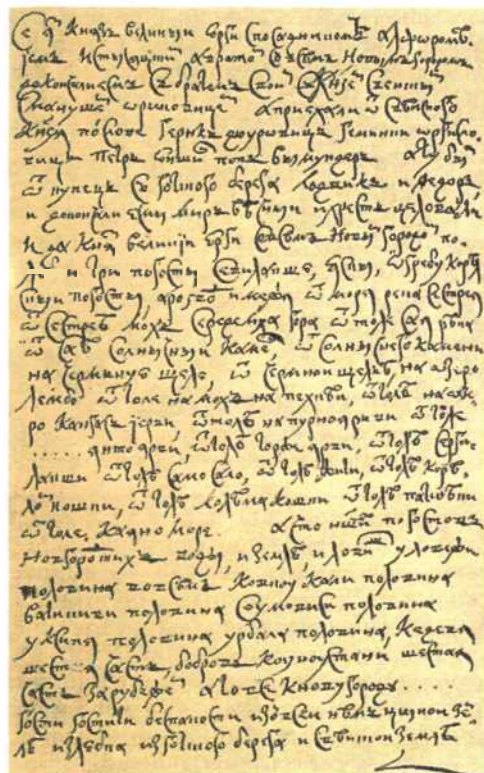 Се яз князь великыи юрги с посадникомъ алфоромѣ
емъ и с тысяцкимъ авраамомъ с всѣмъ новымъ городомъ
докончалиесмь с братомъ своимъ с княземъ свейскимъ
с манушемъ ориковицемъ а приехали от свѣиского
князя послове герикъ дюуровицъ геминки орисло
вицъ петръ юншин попъ вымундеръ а ту был
от купецъ с готского берега лодвикъ и федоръ
и доконцали есмы миръ вѣчныи и хрестъ целовали
и дал князь великии юрги со всѣмъ новымъ городомъ по
три погосты севилакше, яскы, огребу корѣль
скыи погосты, а розводъ и межя от моря река сестрея
от сестреѣ мохъ середе мха гора оттоле сая рѣка
от саѣ солнычныи камен, от солнычнего камени
на чермную щелю, от чермнои щелѣ, на озеро
лембо, оттоле на мохъ на пехкѣи, оттолѣ на озе
ро кангасъ іерви, оттолѣ на пурноярви оттоле
. . . . . янтоярви, оттолѣ торжи ярви, оттолѣ серги
лакши оттолѣ само сало, оттолѣ жити, оттолѣ корѣ
ломкошки, оттолѣ колѣмакошки оттолѣ патсоѣки
оттоле, каяно море. а што наших погостовъ
новгородцкихъ воды, и землѣ, и ловищъ у ловижи
половина во всѣмъ ковкоукали половина
ватикиви половина соумовиси половина
уксипя половина урбала половина, кедевя
шестая часть, бобровъ коуноустани шестая
часть за рубежем а то все к новугороду . . . .
гости гостити бес пакости изо всеи нѣмѣцкои зе
лѣ из любка из готского берега и свѣискои землѣ